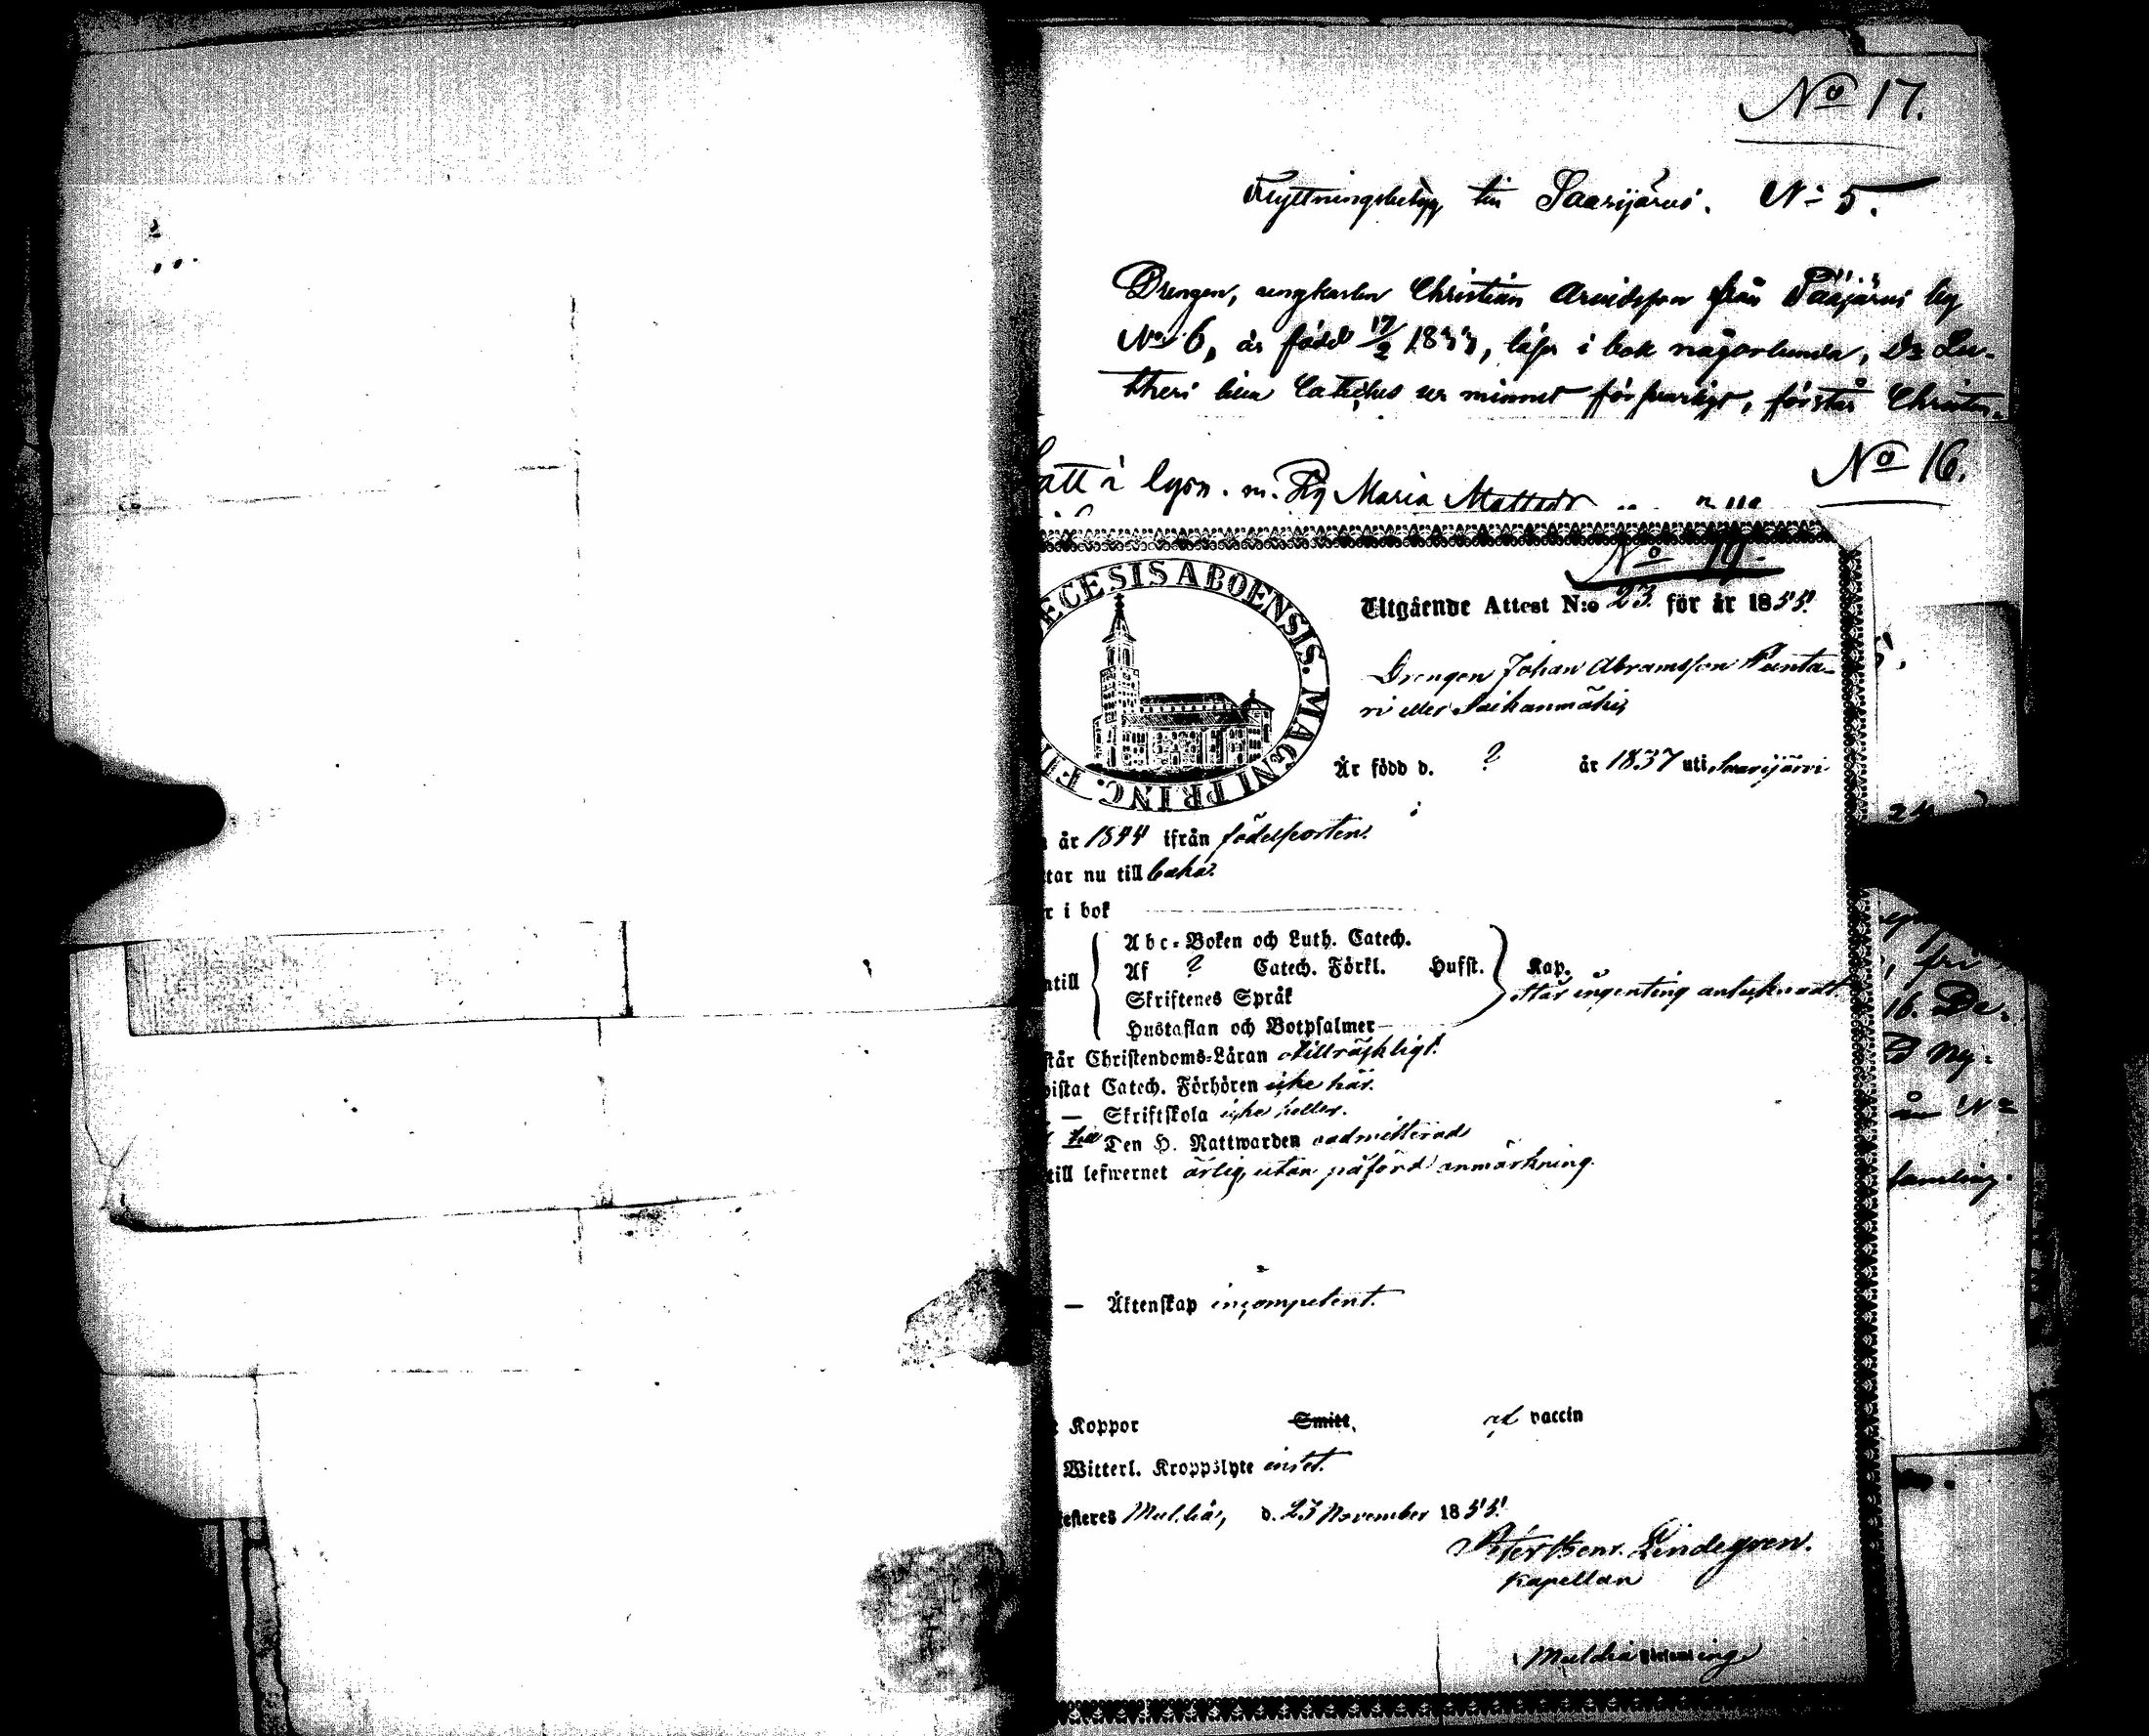 No 17.
Flyttningsbetyg till Saarijärvi. No 5.
Drengen, ungkarlen Christian Arvidsson från Pääjärvi by
No 6, är född 17/2 1833, läser i bok någorlunda, Dr Lu-
theri lilla Catches ur minnet försvarligt, förstår Christen-
No 16.
att i lysn. m. Pig Maria Mattsdr
No 19.
ECESIS ABOENSIS. MAGNI PRINC. FI
Utgående Attest N:o 23 för år 1855.
Drengen Johan Abramsson Punta-
ri eller Saikanmäki
Är född d. ? år 1837 uti Saarijärvi
år 1844 ifrån födelseorten.
tar nu till baka.
r i bok
ntill
Abc-Boken och Luth. Catech.
Af ? Catech. Förkl. Husst. Kap.
Står ingenting antecknadt.
Skriftenes Språk
Hustaflan och Botpsalmer
står Christendoms-Läran otillräckligt.
vistat Catech. Förhören icke här.
— Skriftskola icke heller.
till Den H. Nattwarden oadmitterad
till lefwernet ärlig, utan påförd anmärkning.
— Äktenskap incompetent.
Koppor Smitt, vaccin
Witterl. Kroppslyte intet.
esteres Multia, d. 23 November 1855.
Peter Henr. Lindegren.
Kapellan
Multia
24
, fri
16. De-
D Ny-
år No
samling.